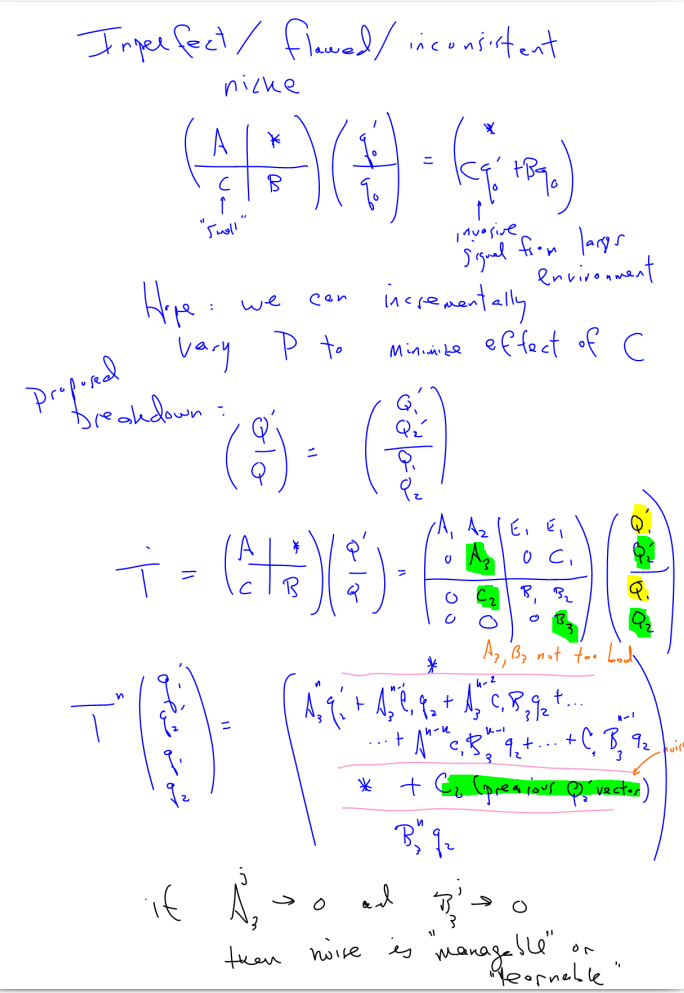 Imperfect/ flawed/ inconsistent
niche
( A | * ; C | B ) ( q₀' ; q₀ ) = ( * ; Cq₀' + Bq₀ )
↑ "small"
↑ invasive
signal from large
environment
Hope: we can incrementally
vary P to minimize effect of C
Proposed
breakdown:
( Q' ; Q ) = ( Q₁' ; Q₂' ; Q₁ ; Q₂ )
T = ( A | * ; C | B ) ( Q' ; Q ) = ( A₁ A₂ | E₁ E₁ ; 0 A₃ | 0 C₁ ; 0 C₂ | B₁ B₂ ; 0 0 | 0 B₃ ) ( Q₁' ; Q₂' ; Q₁ ; Q₂ )
A₃, B₃ not too bad
Tⁿ ( q₁' ; q₂' ; q₁ ; q₂ ) =
*
A₃ⁿ q₂' + A₃ⁿ⁻¹ C₁ q₂ + A₃ⁿ⁻² C₁ B₃ q₂ + ...
... + Aⁿ⁻ᵏ C₁ B₃ᵏ⁻¹ q₂ + ... + C₁ B₃ⁿ⁻¹ q₂
noise
* + C₂ (previous Q₂' vector)
B₃ⁿ q₂
if A₃ʲ → 0 and B₃ʲ → 0
then noise is "manageable" or
"learnable"